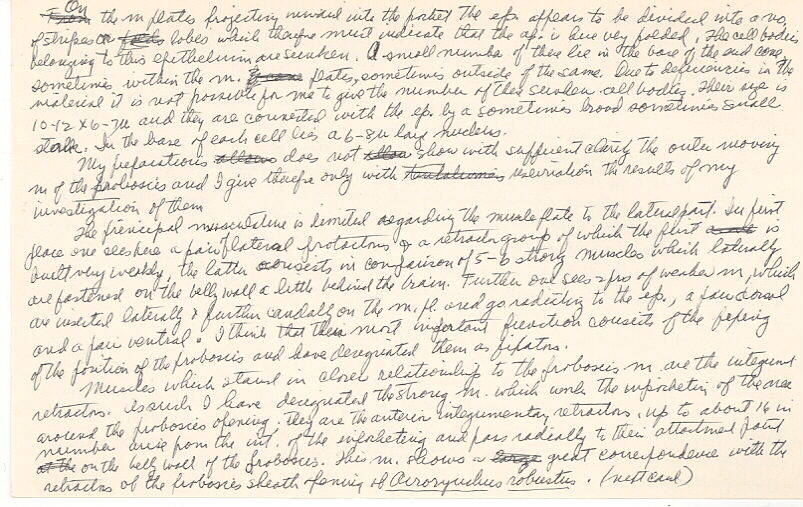 On the m plates projecting inward into the pocket the ep. appears to be divided into a no,
of stripes or lobes which therefore must indicate that the ep. is here very folded. The cell bodies
belonging to this epithelium are sunken. A small number of these lie in the base of the end cone,
sometimes within the m. plates, sometimes outside of the same. Due to deficiencies in the
material it is not possible for me to give the number of these sunken cell bodies. Their size is
10-12 x 6-7u and they are connected with the ep. by a sometimes broad sometimes small
stalk. In the base of each cell lies a 6-8u large nucleus.
My preparations does not show with sufficient clarity the outer moving
m of the proboscis and I give therefore only with reservation the results of my
investigation of them
The principal musculature is limited regarding the muscle plate to the lateral part. In first
place one sees here a pair of lateral protractors & a retractor group of which the first is
built very weakly, the latter consists in comparison of 5-6 strong muscles which laterally
are fastened on the belly wall a little behind the brain. Further one sees 2 prs of weaker m, which
are inserted laterally & further caudally on the m. pl. and go radiating to the ep., a pair dorsal
and a pair ventral. I think that their most important function consists of the fixing
of the position of the proboscis and have designated them as fixators.
Muscles which stand in closer relationship to the proboscis m. are the integument
retractors. As such I have designated the strong m. which work the inpocketing of the area
around the proboscis opening; they are the anterior integumentary retractors. up to about 16 in
number arise from the int. of the inpocketing and pass radially to their attachment point
on the belly wall of the proboscis. This m. shows a great correspondence with the
retractors of the proboscis sheath opening of Acrorynchus robustus. (next card)